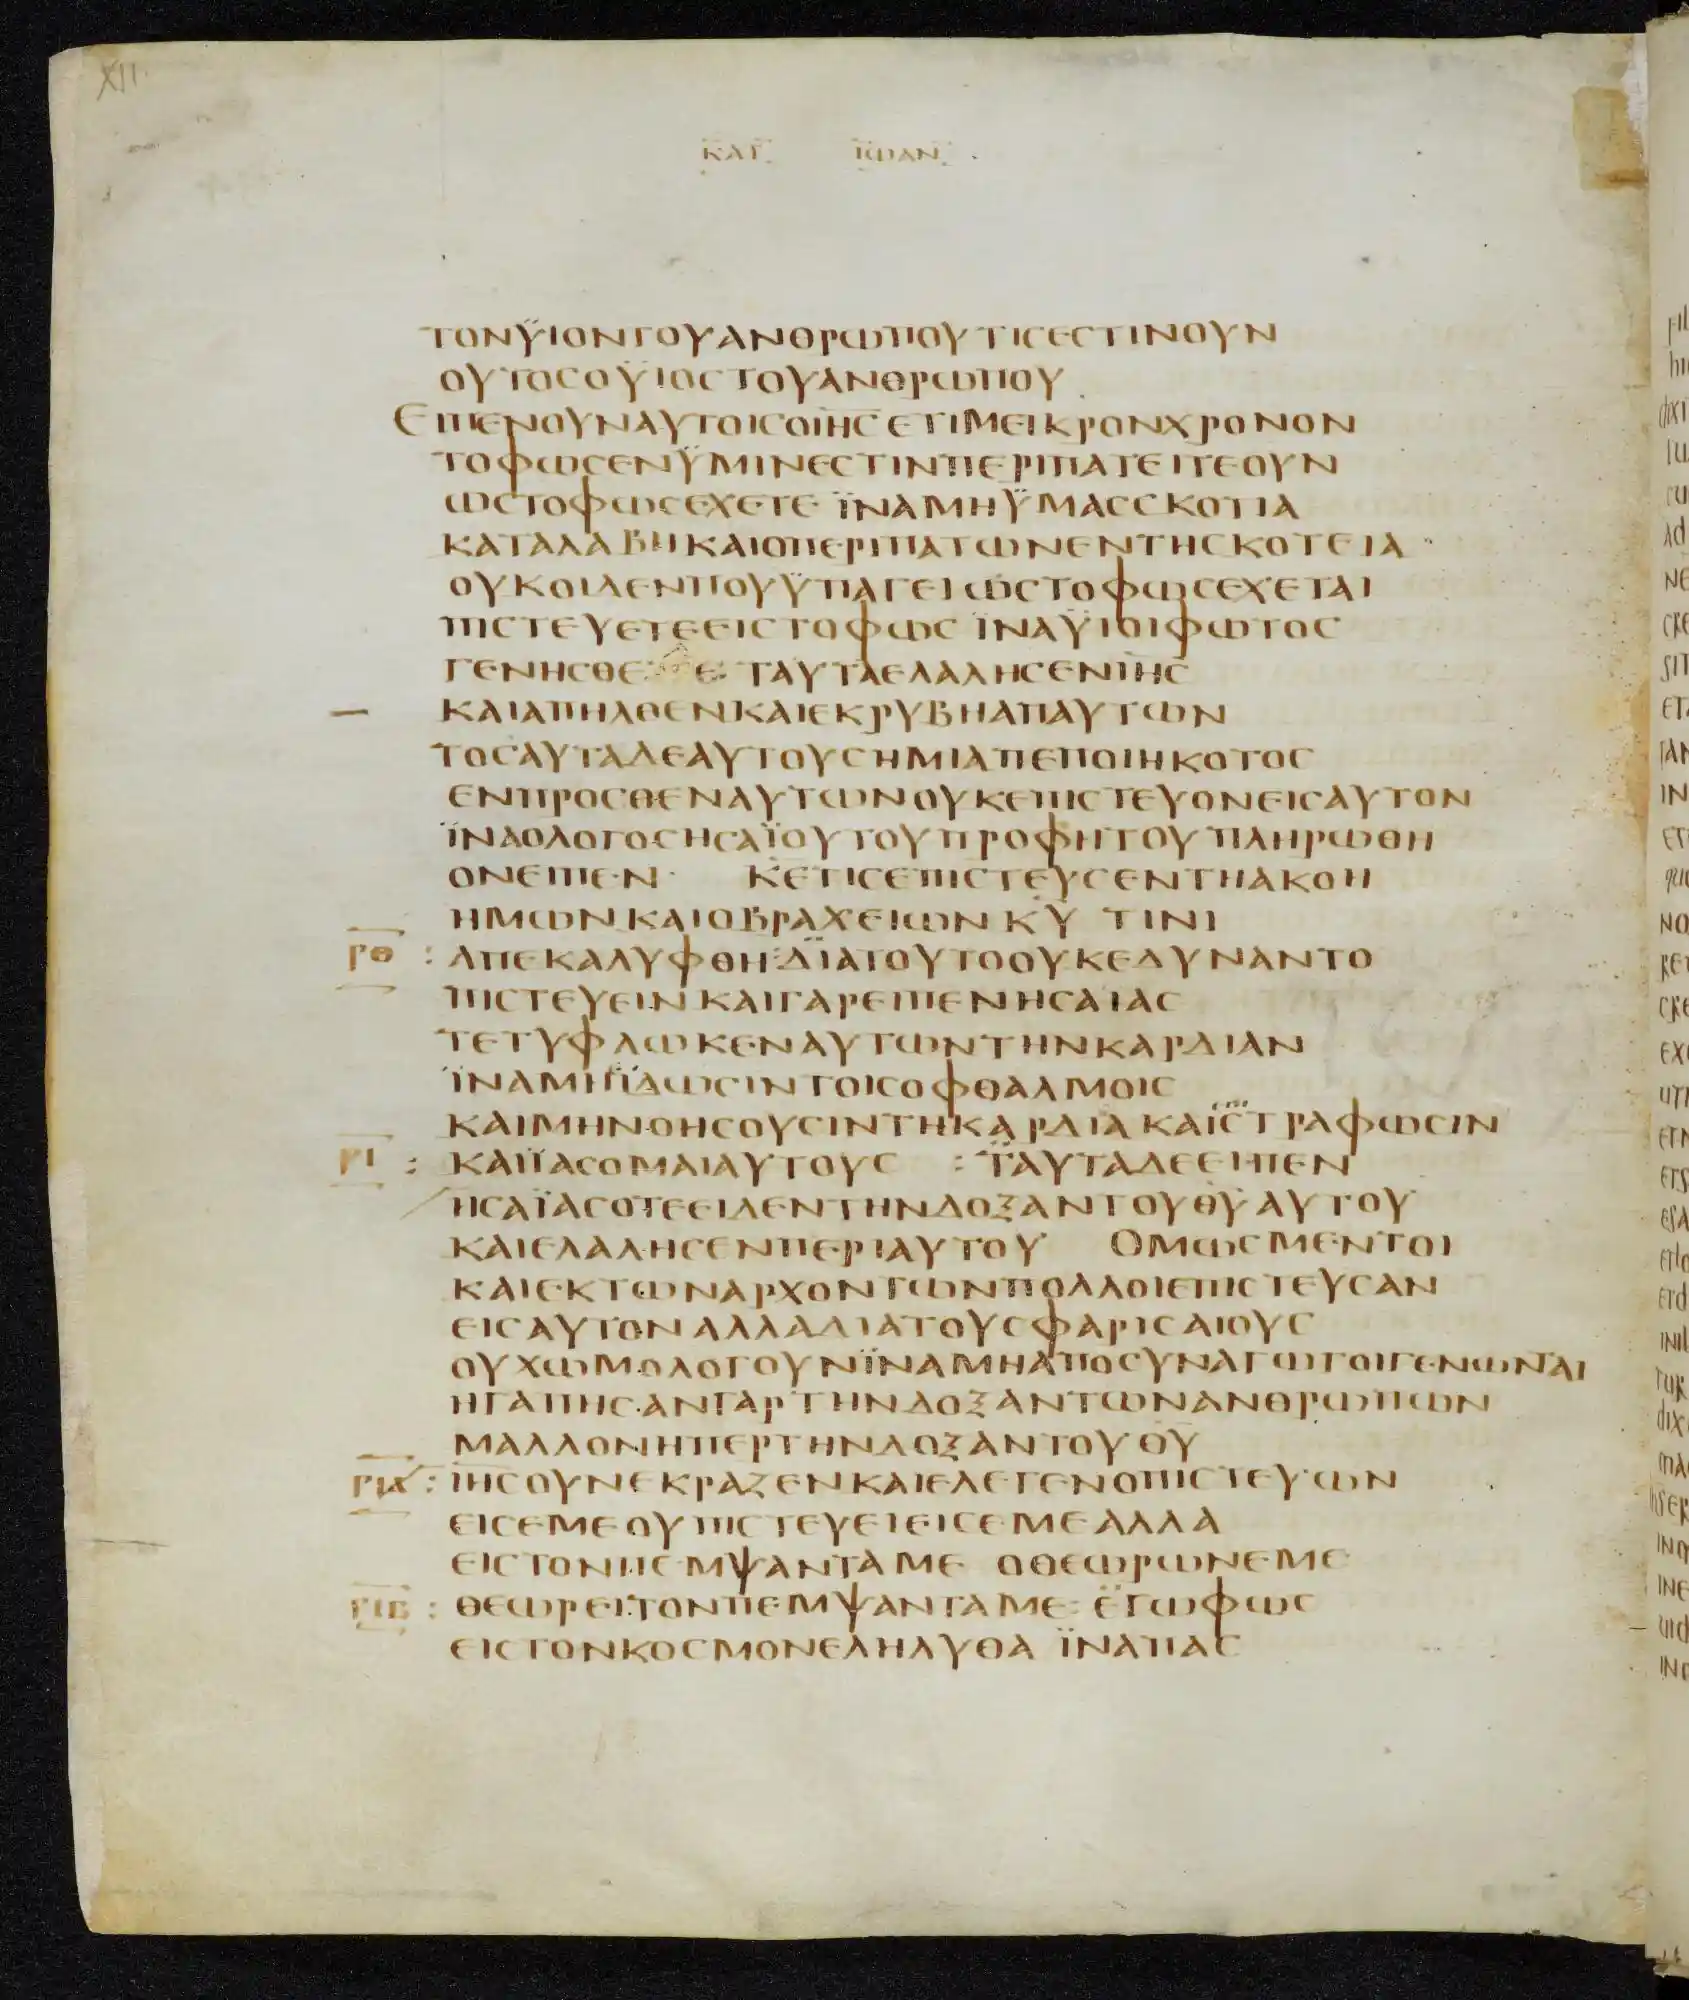 XII
ΚΑΤ ΙΩΑΝ
ΤΟΝΫΙΟΝΤΟΥΑΝΘΡΩΠΟΥΤΙСΕСΤΙΝΟΥΝ
ΟΥΤΟСΟΫΙΟСΤΟΥΑΝΘΡΩΠΟΥ
ΕΙΠΕΝΟΥΝΑΥΤΟΙСΟΙΗС ΕΤΙΜΕΙΚΡΟΝΧΡΟΝΟΝ
ΤΟΦΩСΕΝΫΜΙΝΕСΤΙΝΠΕΡΙΠΑΤΕΙΤΕΟΥΝ
ΩСΤΟΦΩСΕΧΕΤΕ ΪΝΑΜΗΫΜΑССΚΟΤΙΑ
ΚΑΤΑΛΑΒΗΚΑΙΟΠΕΡΙΠΑΤΩΝΕΝΤΗСΚΟΤΕΙΑ
ΟΥΚΟΙΔΕΝΠΟΥΫΠΑΓΕΙΩСΤΟΦΩСΕΧΕΤΑΙ
ΠΙСΤΕΥΕΤΕΕΙСΤΟΦΩС ΪΝΑΫΙΟΙΦΩΤΟС
ΓΕΝΗСΘΕ Ε ΤΑΥΤΑΕΛΑΛΗСΕΝΙΗС
ΚΑΙΑΠΗΛΘΕΝΚΑΙΕΚΡΥΒΗΑΠΑΥΤΩΝ
ΤΟСΑΥΤΑΔΕΑΥΤΟΥСΗΜΙΑΠΕΠΟΙΗΚΟΤΟС
ΕΝΠΡΟСΘΕΝΑΥΤΩΝΟΥΚΕΠΙСΤΕΥΟΝΕΙСΑΥΤΟΝ
ΪΝΑΟΛΟΓΟСΗСΑΪΟΥΤΟΥΠΡΟΦΗΤΟΥΠΛΗΡΩΘΗ
ΟΝΕΙΠΕΝ ΚΕΤΙСΕΠΙСΤΕΥСΕΝΤΗΑΚΟΗ
ΗΜΩΝΚΑΙΟΒΡΑΧΕΙΩΝΚΥ ΤΙΝΙ
ΡΘ : ΑΠΕΚΑΛΥΦΘΗ:ΔΪΑΤΟΥΤΟΟΥΚΕΔΥΝΑΝΤΟ
ΠΙСΤΕΥΕΙΝΚΑΙΓΑΡΕΙΠΕΝΗСΑΙΑС
ΤΕΤΥΦΛΩΚΕΝΑΥΤΩΝΤΗΝΚΑΡΔΙΑΝ
ΪΝΑΜΗΪΔΩСΙΝΤΟΙСΟΦΘΑΛΜΟΙС
ΚΑΙΜΗΝΟΗСΟΥСΙΝΤΗΚΑΡΔΙΑ ΚΑΙСΤΡΑΦΩСΙΝ
ΡΙ : ΚΑΙΪΑСΟΜΑΙΑΥΤΟΥС :ΤΑΥΤΑΔΕΕΙΠΕΝ
ΗСΑΪΑСΟΤΕΕΙΔΕΝΤΗΝΔΟΞΑΝΤΟΥΘΥΑΥΤΟΥ
ΚΑΙΕΛΑΛΗСΕΝΠΕΡΙΑΥΤΟΥ ΟΜΩСΜΕΝΤΟΙ
ΚΑΙΕΚΤΩΝΑΡΧΟΝΤΩΝΠΟΛΛΟΙΕΠΙСΤΕΥСΑΝ
ΕΙСΑΥΤΟΝΑΛΛΑΔΙΑΤΟΥСΦΑΡΙСΑΙΟΥС
ΟΥΧΩΜΟΛΟΓΟΥΝΪΝΑΜΗΑΠΟСΥΝΑΓΩΓΟΙΓΕΝΩΝΤΑΙ
ΗΓΑΠΗСΑΝΓΑΡΤΗΝΔΟΞΑΝΤΩΝΑΝΘΡΩΠΩΝ
ΜΑΛΛΟΝΗΠΕΡΤΗΝΔΟΞΑΝΤΟΥΘΥ
ΡΙΑ : ΙΗСΟΥΝΕΚΡΑΖΕΝΚΑΙΕΛΕΓΕΝΟΠΙСΤΕΥΩΝ
ΕΙСΕΜΕΟΥΠΙСΤΕΥΕΙΕΙСΕΜΕΑΛΛΑ
ΕΙСΤΟΝΠΕΜΨΑΝΤΑΜΕ ΟΘΕΩΡΩΝΕΜΕ
ΡΙΒ : ΘΕΩΡΕΙΤΟΝΠΕΜΨΑΝΤΑΜΕ: ΕΓΩΦΩС
ΕΙСΤΟΝΚΟСΜΟΝΕΛΗΛΥΘΑ ΪΝΑΠΑС